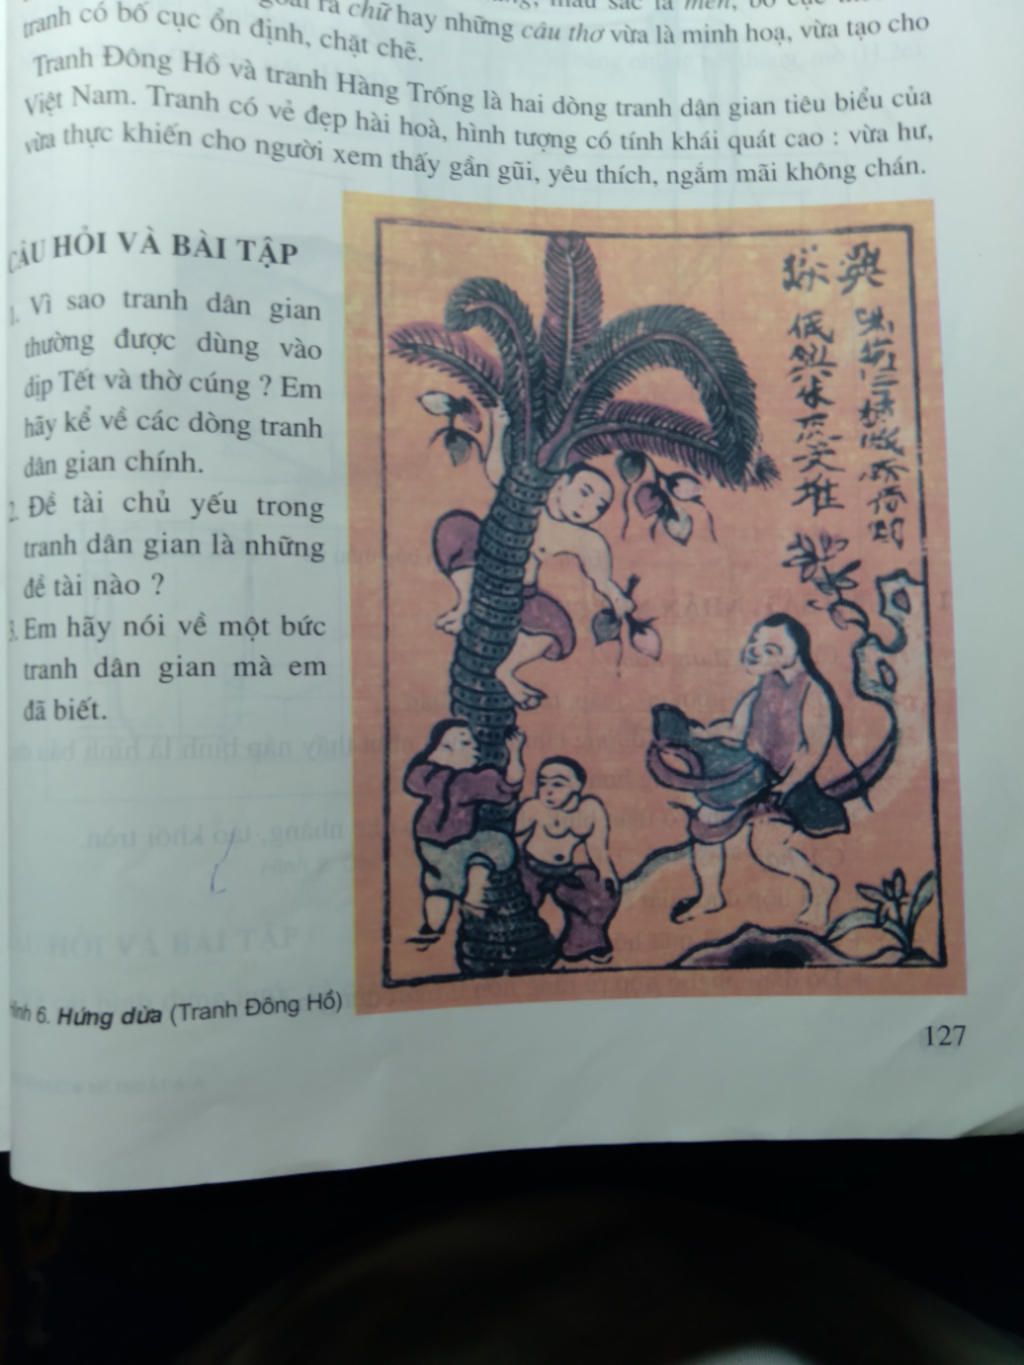 ra chữ hay những câu thơ vừa là minh hoạ, vừa tạo cho
tranh có bố cục ổn định, chặt chẽ.
Tranh Đông Hồ và tranh Hàng Trống là hai dòng tranh dân gian tiêu biểu của
Việt Nam. Tranh có vẻ đẹp hài hoà, hình tượng có tính khái quát cao : vừa hư,
vừa thực khiến cho người xem thấy gần gũi, yêu thích, ngắm mãi không chán.
CÂU HỎI VÀ BÀI TẬP
1. Vì sao tranh dân gian
thường được dùng vào
dịp Tết và thờ cúng ? Em
hãy kể về các dòng tranh
dân gian chính.
2. Đề tài chủ yếu trong
tranh dân gian là những
đề tài nào ?
3. Em hãy nói về một bức
tranh dân gian mà em
đã biết.
Hình 6. Hứng dừa (Tranh Đông Hồ)
127